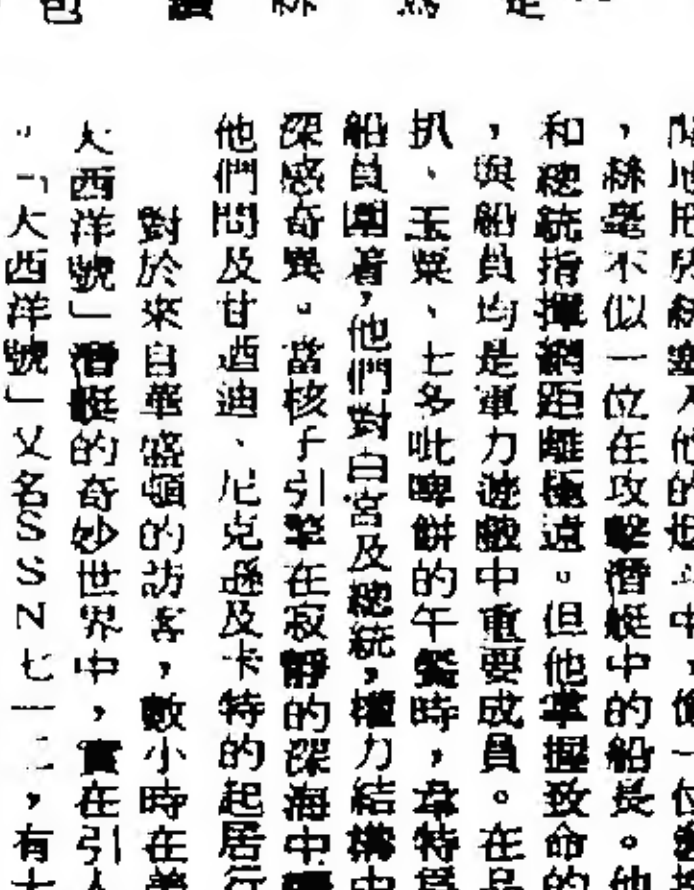 地把於絲塞入他的煙斗中,像一位
,絲毫不似一位在攻擊潛艇中的船長。他
和總統指揮網距離極遠。但他掌握致命的
,與船員均是軍力遊戲中重要成員。在
扒、玉粟、七多吡啤餅的午餐時,韋特爲
船員圍着,他們對白宮及總統,權力結構中
深感奇異。當核子引擎在寂靜的深海中
他們問及甘迺迪、尼克遜及卡特的起居行
對於來自華盛頓的訪客,數小時在美
大西洋號」潛艇的奇妙世界中,實在引人
。「大西洋號」又名SSN七一二,有